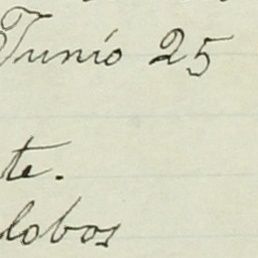 Junio 25
te.
lobos